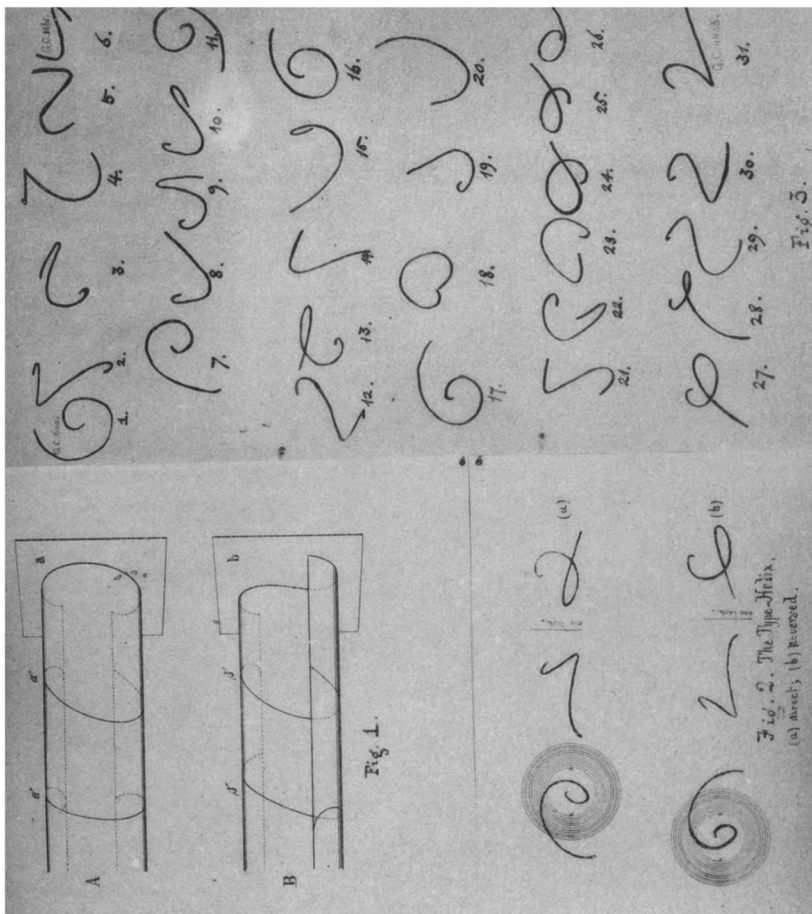 A
a'
a'
a
B
β'
β'
b
Fig. 1.
(a)
(b)
Fig. 2. The Type-Helix.
(a) direct; (b) reversed.
1. 2. 3. 4. 5. 6.
7. 8. 9. 10. 11.
12. 13. 14. 15. 16.
17. 18. 19. 20.
21. 22. 23. 24. 25. 26.
27. 28. 29. 30. 31.
Fig. 3.